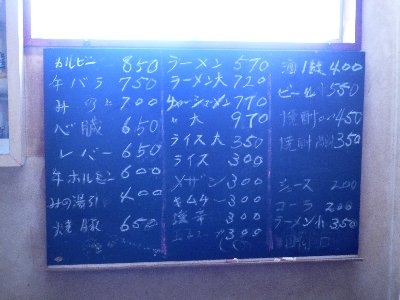 カルビー 850
牛バラ 750
みの 700
心臓 650
レバー 650
牛ホルモン 600
みの湯引 400
焼豚 650
ラーメン 570
ラーメン大 720
チャーシューメン 770
〃 大 970
ライス大 350
ライス 300
メザシ 300
キムチ 300
300
300
酒1級 400
ビール 550
焼酎 450
焼酎 350
ジュース 200
コーラ 200
ラーメン小 350